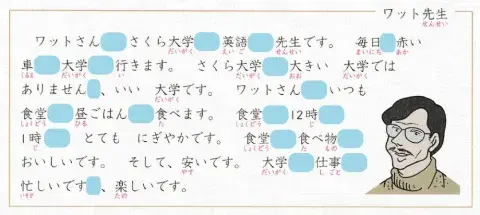 ワット先生
せんせい
ワットさん さくら大学 英語 先生です。 毎日 赤い
だいがく えいご せんせい まいにち あか
車 大学 行きます。 さくら大学 大きい 大学では
くるま だいがく い だいがく おお だいがく
ありません 、いい 大学です。 ワットさん いつも
だいがく
食堂 昼ごはん 食べます。 食堂 12時
しょくどう ひる た しょくどう じ
1時 とても にぎやかです。 食堂 食べ物
じ しょくどう た もの
おいしいです。 そして、安いです。 大学 仕事
やす だいがく しごと
忙しいです 、楽しいです。
いそが たの